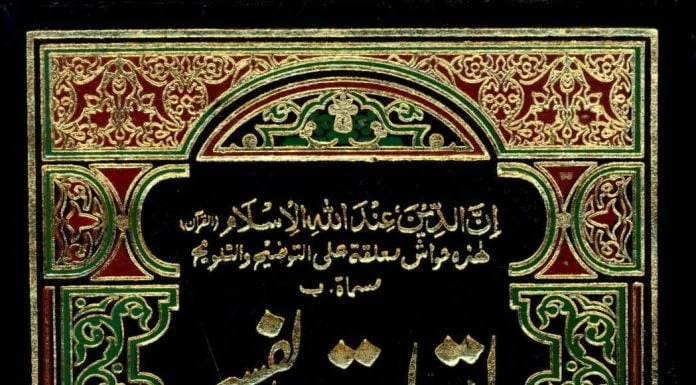 إِنَّ الدِّيْنَ عِنْدَ اللهِ الْاِسْلَامِ (القرآن)
هٰذه حواش معلقة على التوضيح والتلويح
مسماة ب